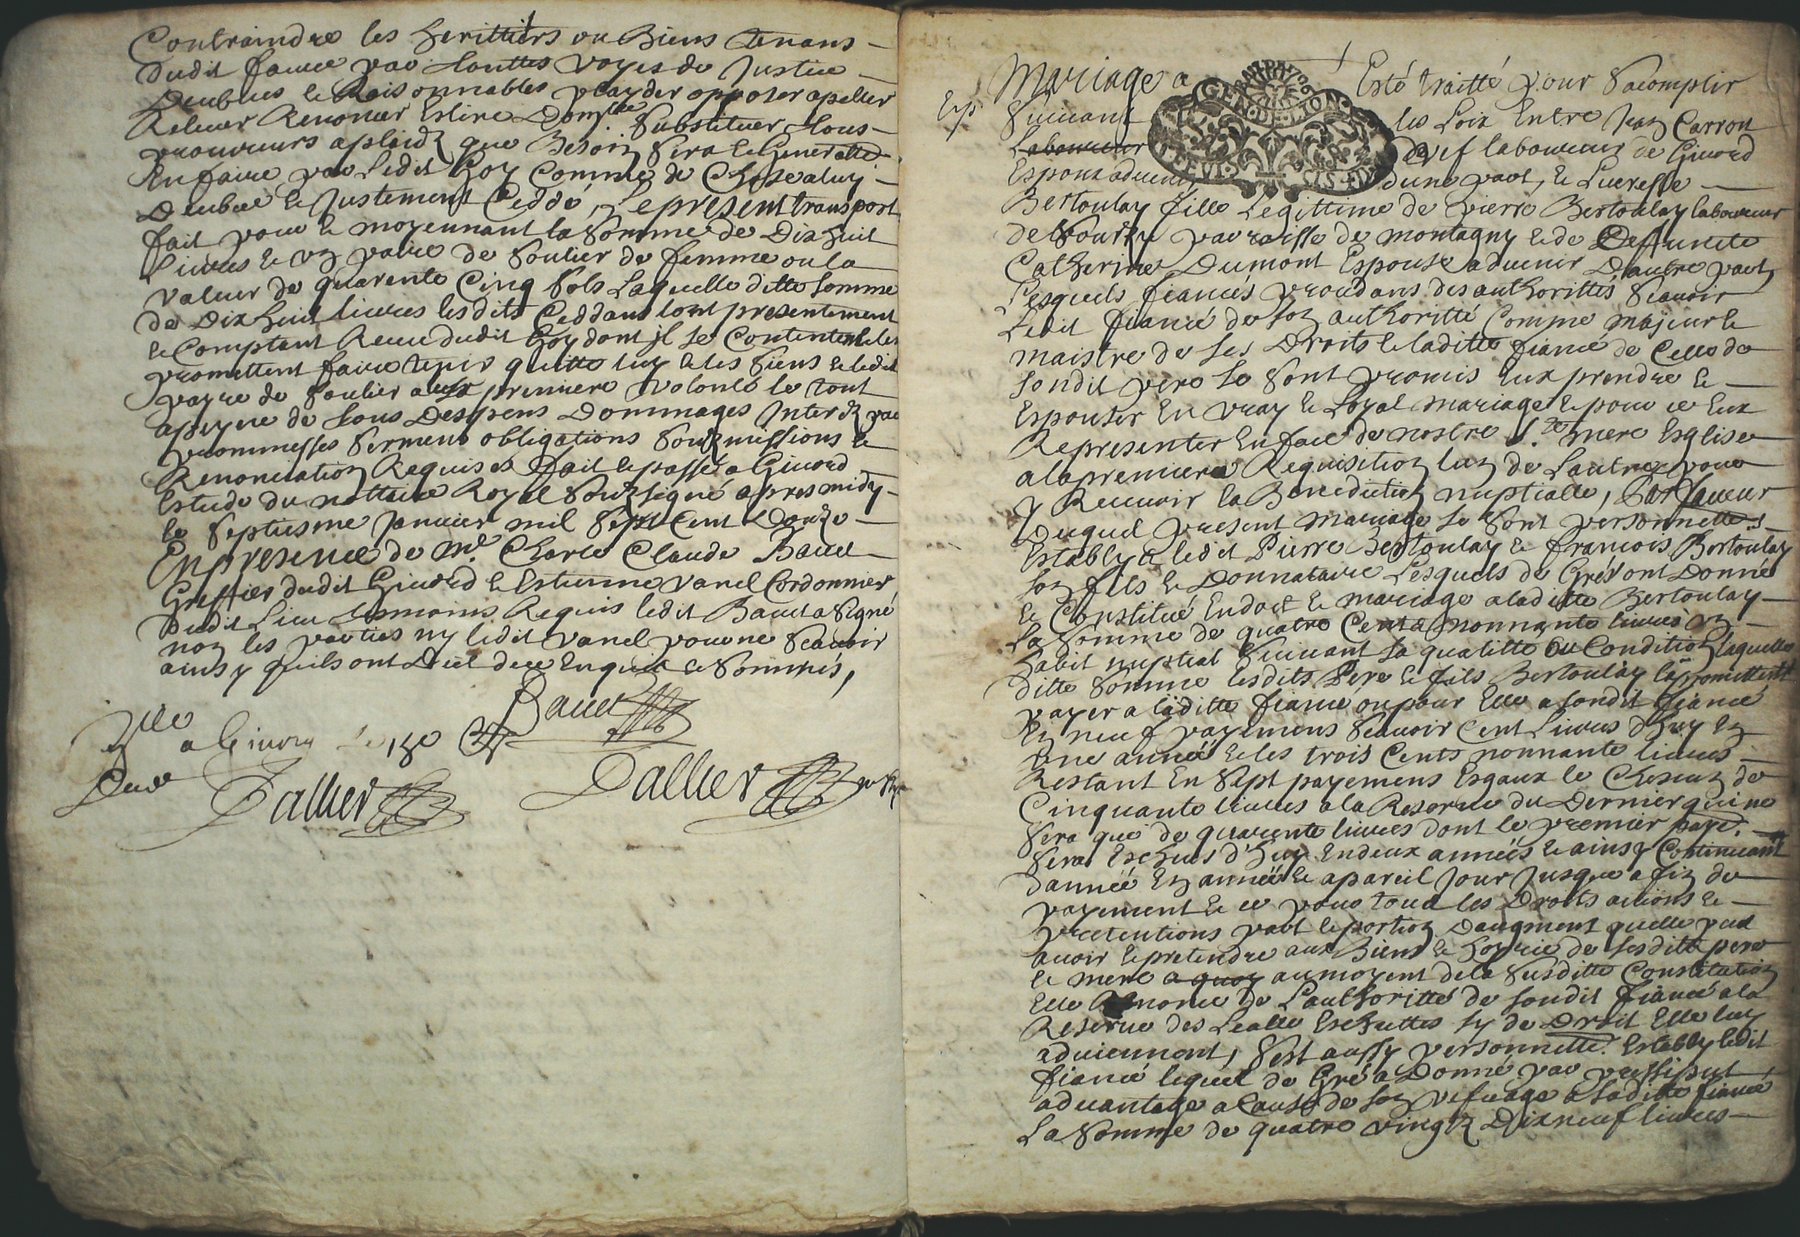 Contraindre les herittiers ou Biens tenans
dudit faure par touttes voyes de Justice
Deubues et Raisonnables playder opposer apeller
Relever Renoncer Eslire Dom.lle Substituer tous
procureurs aplaidz que Besoin sera et Generallem.
En faire par ledit Goy Comme de Chose a luy
Deubue et Justement Ceddé, Le present transport
fait pour et moyennant la somme de Dix huit
Livres et un paire de Soulier de femme ou la
valeur de quarente Cinq sols laquelle ditte somme
de Dix huit livres lesdits Ceddans ont presentement
et Comptant Receu dudit Goy dont il se Contentent et les
promettent faire tenir quitte luy et les siens et ledit
payre de Soulier a leur premiere volonté le tout
a peyne de tous Despens Dommages Interetz par
prommesses serment obligations soubzmissions et
Renonciation Requises fait et passé a Givord
Estude du nottaire Royal soubzsigné apres midy
le septiesme Janvier mil sept Cent Douze
En presence de m.e Charle Claude Bauet
Greffier dudit Givord et Estienne vanel Cordonnier
dudit Lieu tesmoins Requis ledit Bauet a signé
non les parties ny ledit vanel pour ne scavoir
ainsy quils ont Dict de ce Enquis et sommés,
Bauet
a Givord
Dallier
Dallier
Mariage a Esté traitté pour sacomplir
Exp.
Suivant les Loix Entre Jean Carron
Laboureur vef laboureur de Givord
Espoux advenir dune part, et Lucresse
Bertoulay fille Legittime de pierre Bertoulay laboureur
de parroisse de montagny et de Deffuncte
Catherine Dumont Espouse advenir D'autre part,
Lesquels fiancés procedans des authorittés scavoir
Ledit fiancé de son authoritté Comme majeur et
maistre de ses Droits et laditte fiancé de Celle de
sondit pere se sont promis Eux prendre et
Espouser En vray et Loyal mariage et pour ce Eux
Representer En face de nostre S.te mere Esglise
a la premiere Requisition lun de Lautre pour
y Recevoir la Benediction nuptialle, En faveur
Duquel present mariage se sont personnellem.
Estably ledit Pierre Bertoulay et francois Bertoulay
son fils et Donnataire Lesquels de Gré ont Donné
et Constitué En dot et mariage a laditte Bertoulay
La somme de quatre Cents nonnante livres un
habit nuptial suivant sa qualitté ou Condition laquelle
ditte somme lesdits Pere et fils Bertoulay promettent
payer a laditte fiancé ou pour Elle a sondit fiancé
En neuf payemens scavoir Cent Livres d'huy En
une année et les trois Cents nonnante livres
Restant En sept payemens Esgaux de Chescun de
Cinquante livres a la Reserve du Dernier qui ne
sera que de quarente livres dont le premier paye.
sera Escheus d'huy En deux années et ainsy Continuant
d'année En année et a pareil Jour Jusque a fin de
payement et ce pour tous les Droits actions et
pretentions part et portion Daugment quelle peut
avoir et pretendre aux Biens et hoyrie de sesditts pere
et mere a quoy au moyent de la susditte Constitution
Elle Renonce de L'authoritté de sondit fiancé a la
Reserve des Escheuttes sy de Droit Elle luy
adviennent, s'est aussy personnelle. Estably ledit
fiancé lequel de Gré a Donné par preciput
advantage a Cause de son vefvage a laditte fiancé
La somme de quatre vingtz Dix neuf livres